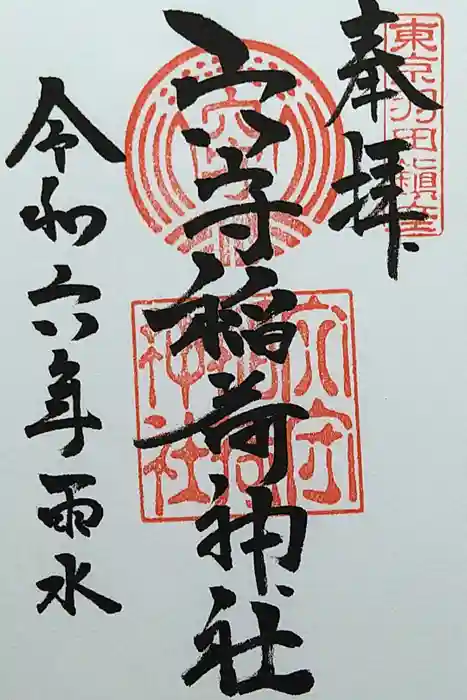 東京羽田鎮座
奉拝
穴守稲荷神社
穴守
稲荷
神社
令和六年雨水